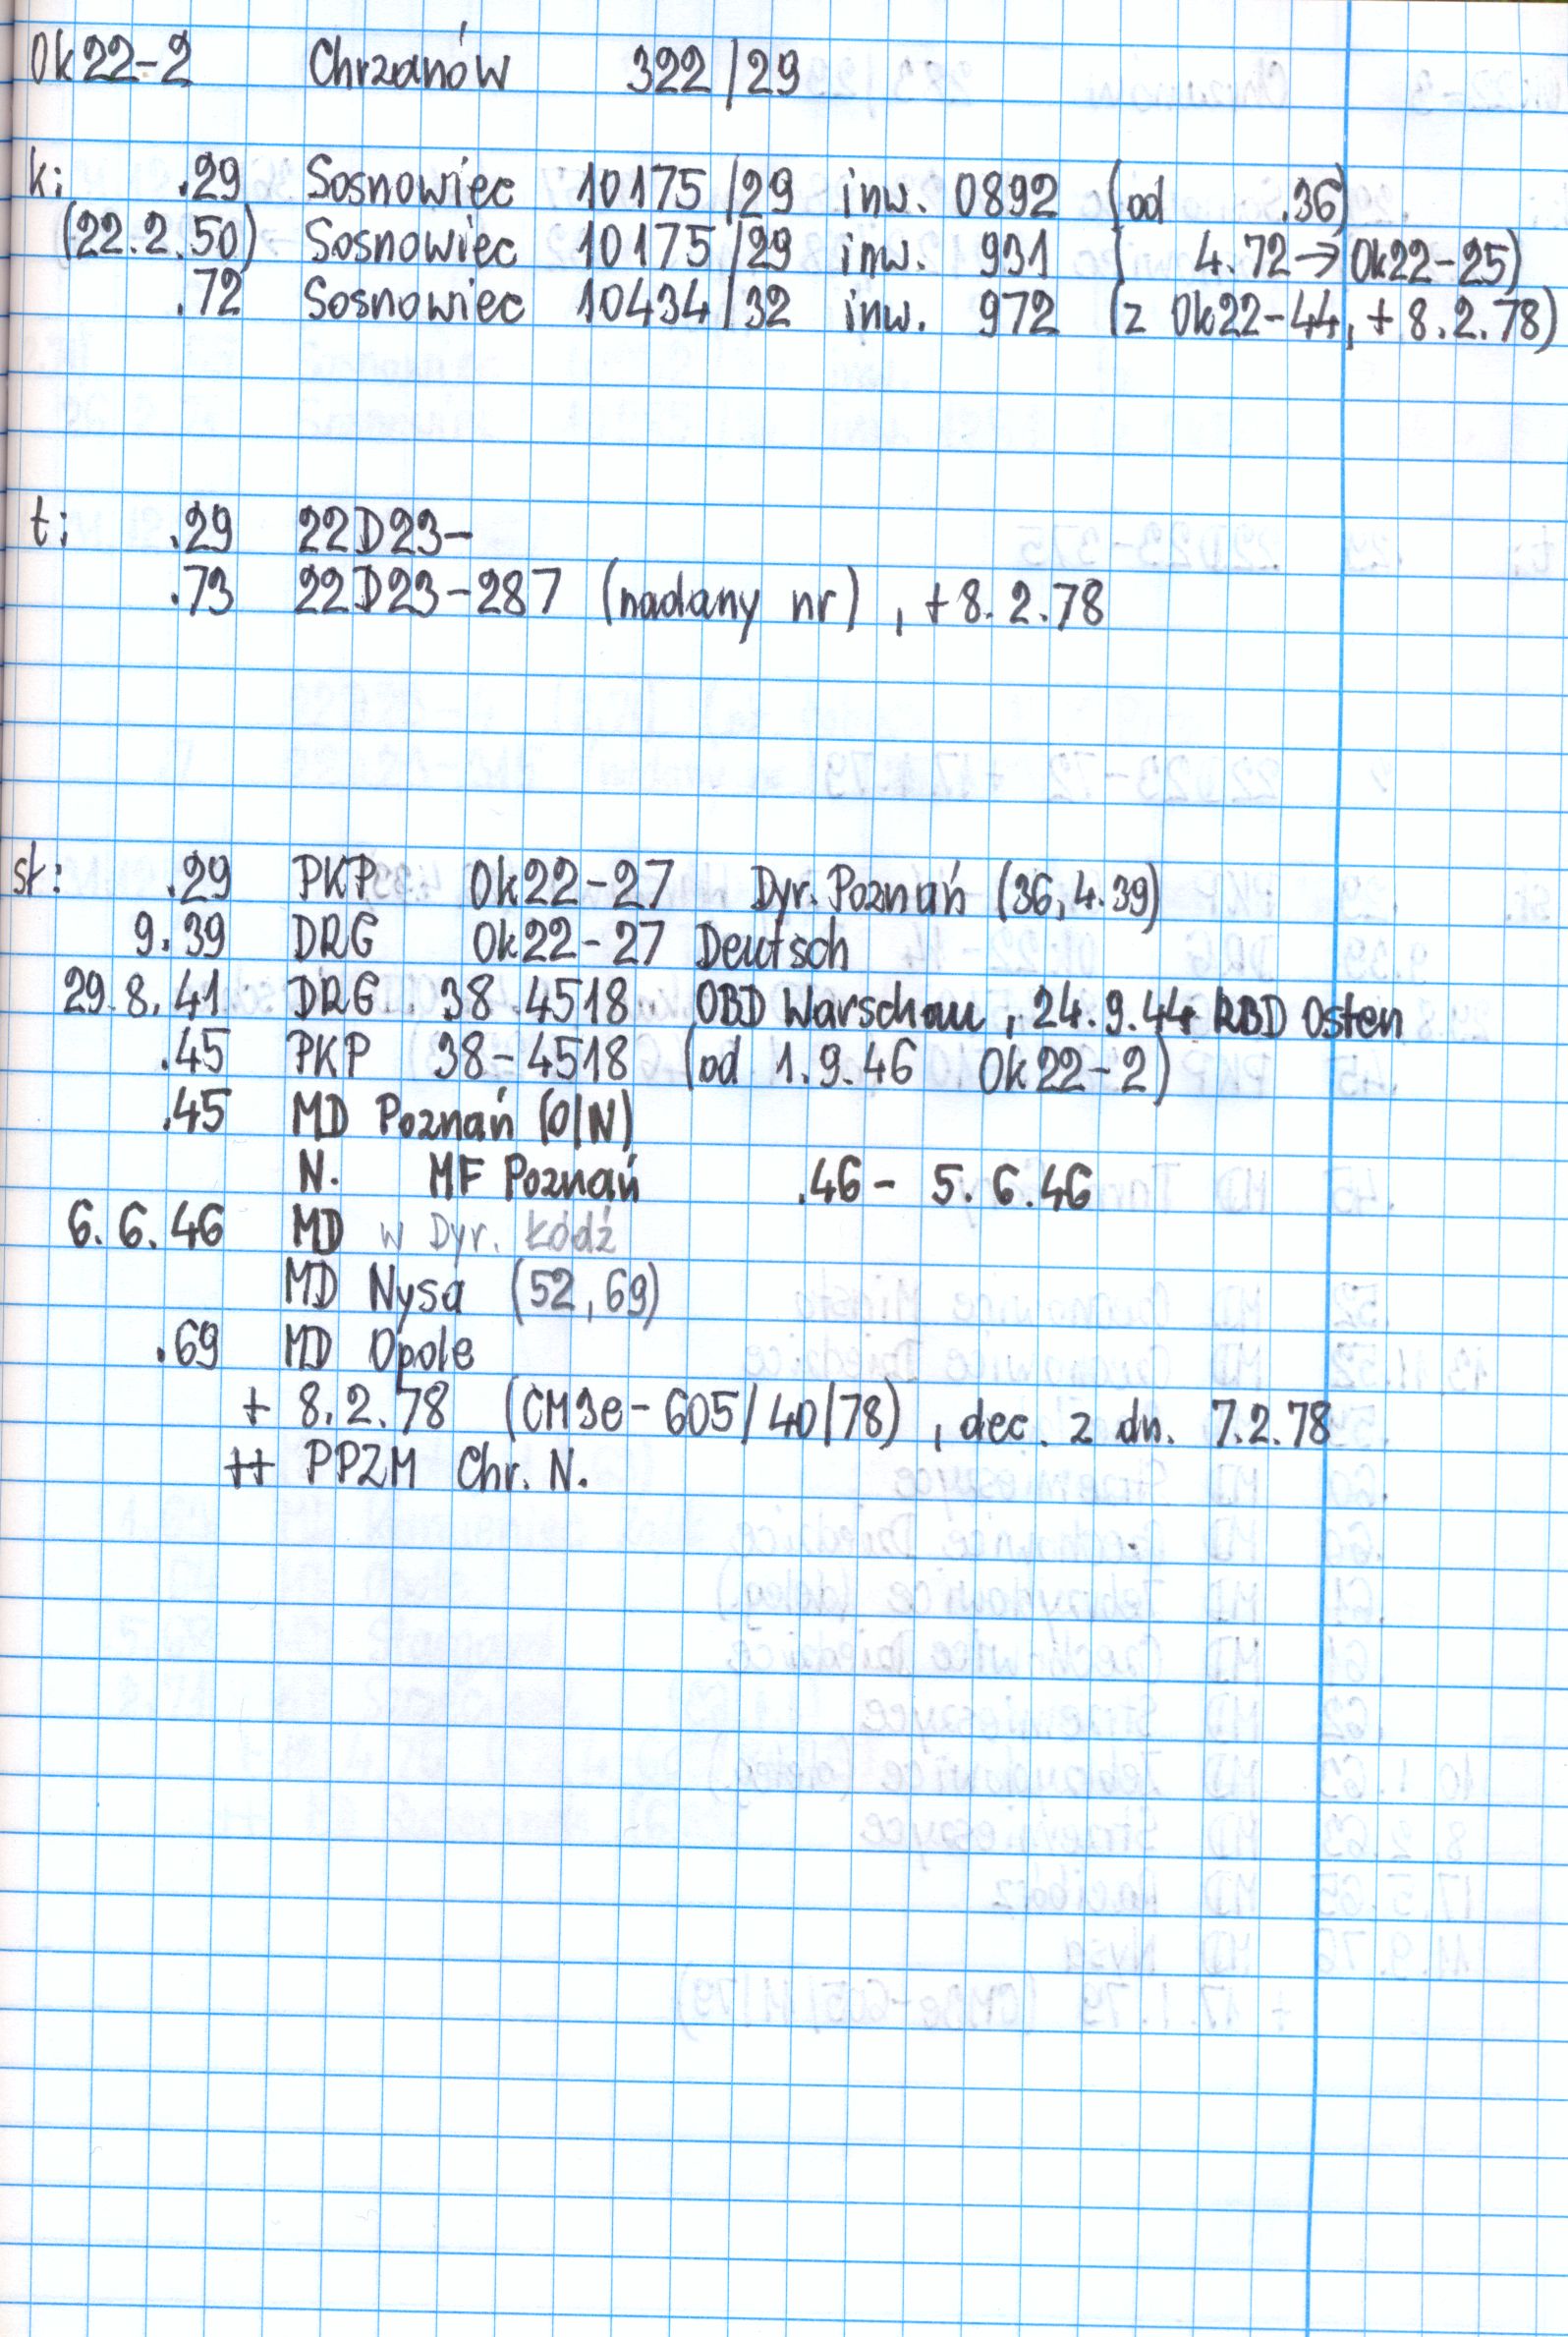 Ok22-2 Chrzanów 322/29
k: .29 Sosnowiec 10175/29 inw. 0892 (od .36)
(22.2.50) Sosnowiec 10175/29 inw. 931 ( 4.72→Ok22-25)
.72 Sosnowiec 10434/32 inw. 972 (z Ok22-44, + 8.2.78)
t: .29 22D23-
.73 22D23-287 (nadany nr), +8.2.78
st: .29 PKP Ok22-27 Dyr. Poznań (36, 4.39)
9.39 DRG Ok22-27 Deutsch
29.8.41 DRG 38 4518 OBD Warschau, 24.9.44 RBD Osten
.45 PKP 38-4518 (od 1.9.46 Ok22-2)
.45 MD Poznań (O/N)
N. MF Poznań .46 - 5.6.46
6.6.46 MD w Dyr. Łódź
MD Nysa (52, 69)
.69 MD Opole
+ 8.2.78 (CM3e-605/40/78), dec. z dn. 7.2.78
++ PPZM Chr. N.